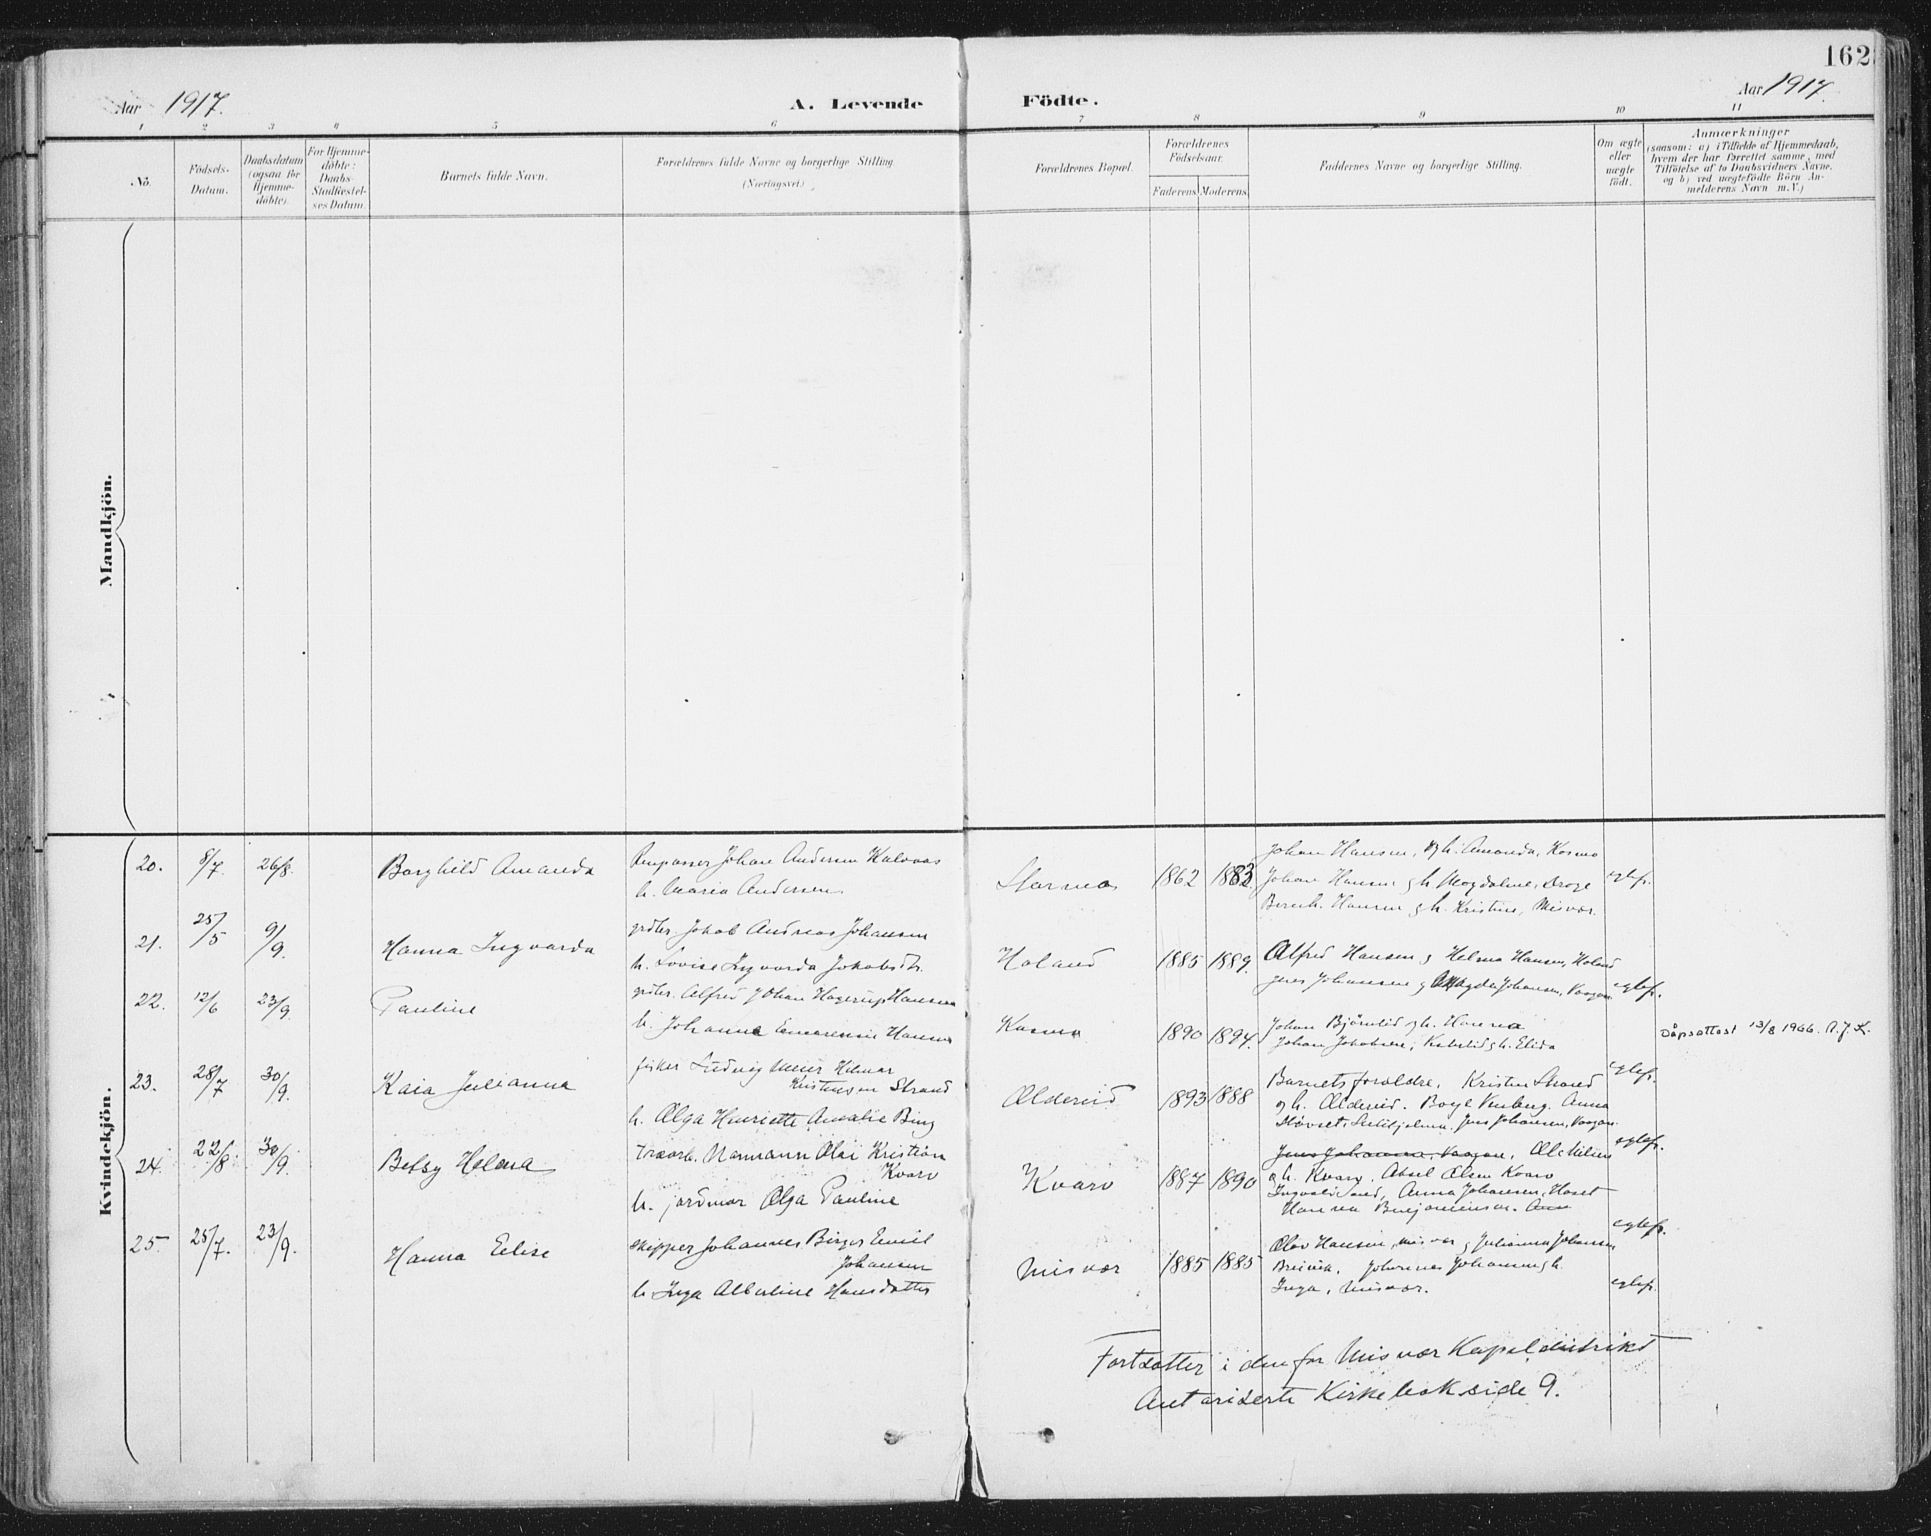 162
Aar 1917.
A. Levende Födte.
Aar 1917.
1 2 3 4 5 6 7 8 9 10 11
No.
Fødsels-
Datum.
Daabsdatum
(ogsaa for
Hjemme-
døbte).
For Hjemme-
døbte:
Daabs-
Stadfæstel-
ses Datum.
Barnets fulde Navn.
Forældrenes fulde Navne og borgerlige Stilling
(Næringsvei).
Forældrenes Bopæl.
Forældrenes
Fødselsaar.
Faderens. Moderens.
Faddernes Navne og borgerlige Stilling.
Om ægte
eller
uægte
født.
Anmærkninger
(saasom: a) i Tilfælde af Hjemmedaab,
hvem der har forrettet samme, med
Tilføielse af to Daabsvidners Navne.
og b) ved uægtefødte Børn An-
melderens Navn m. V.)
Mandkjön.
Kvindekjön.
20. 8/7. 26/8. Borghild Amanda
Johan Andersen Kalvaas
h. Maria Andersen
1862 1883
Johan Hansen, og h. Amanda, Kosmo
Johan Hansen og h. Magdalene,
Hansen og h. Kristine, Misvær.
egtef.
21. 25/5 9/9. Hanna Ingvarda
grdbr. Jakob Andreas Johansen
h. Lovise Ingvarda Jakobsdtr.
Holand 1885 1889.
Alfred Hansen og Helma Hansen, Holand
Jens Johansen og Magda Johansen,
egtef.
22. 12/6 23/9. Pauline
grdbr. Alfred Johan Hagerup Hansen
h. Johanna Hansen
Kosmo 1890 1894.
Johan Bjørnlid og h. Hanna
Johan Jakobsen, og h. Elida
egtef.
Dåpsattest 13/8 1966.
23. 28/7 30/9. Kaia Julianna
fisker Ludvig Meier Hilmar
Kristensen Strand
h. Olga Henriette Amalie Bing
Oldereid 1893 1888
Barnets forældre. Kristen Strand
og h. Oldereid. Anna
Jens Johansen,
egtef.
24. 22/8 30/9. Betsy Helena
træarb. Normann Olai Kristian
Kvarv
h. jordmor Olga Pauline
Kvarv 1887 1890
Jens Johansen,
og h. Kvarv, Aksel Olsen Kvarv
Ingvald Sand, Anna Johansen,
Hanna Benjaminsen.
egtef.
25. 25/7. 23/9. Hanna Elise
skipper Johannes Birger Emil
Johansen
h. Inga Albertine Hansdatter
Misvær 1885 1885
Olav Hansen, Misvær og Julianna Johansen
Breivik. Johannes Johansen og h.
Inga, Misvær.
egtef.
Fortsætter i den for Misvær Kapeldistrikt
Autoriserte Kirkebok side 9.